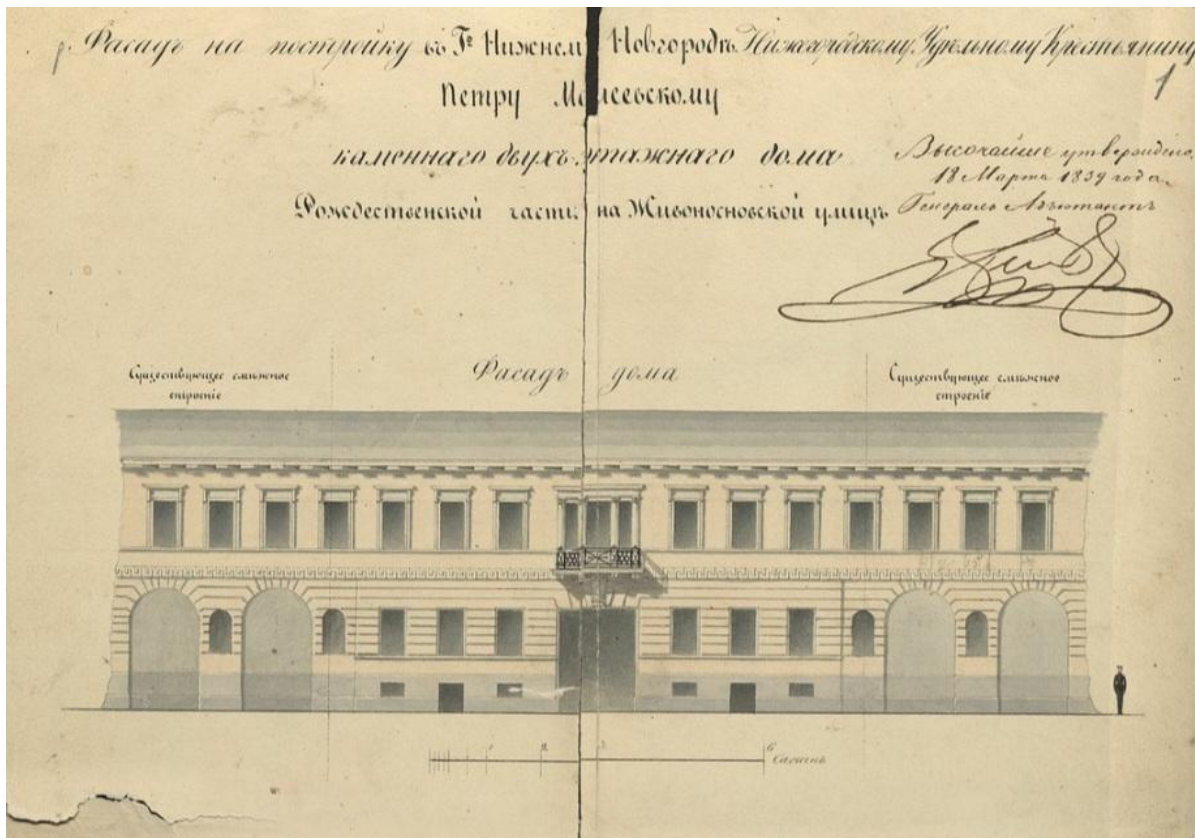 Фасадъ на постройку въ Гѣ Нижнем Новгородѣ Нижегородскому Удѣльному Крестьянину
1
Петру Моисевскому
каменнаго двухъ-этажнаго дома
Рождественской части на Живоносновской улицѣ
Высочайше утверждено,
18 Марта 1839 года.
Генералъ Адъютантъ
Фасадъ дома
Существующее смѣжное
строенiе
Существующее смѣжное
строенiе
1 2 3 6
Сажень